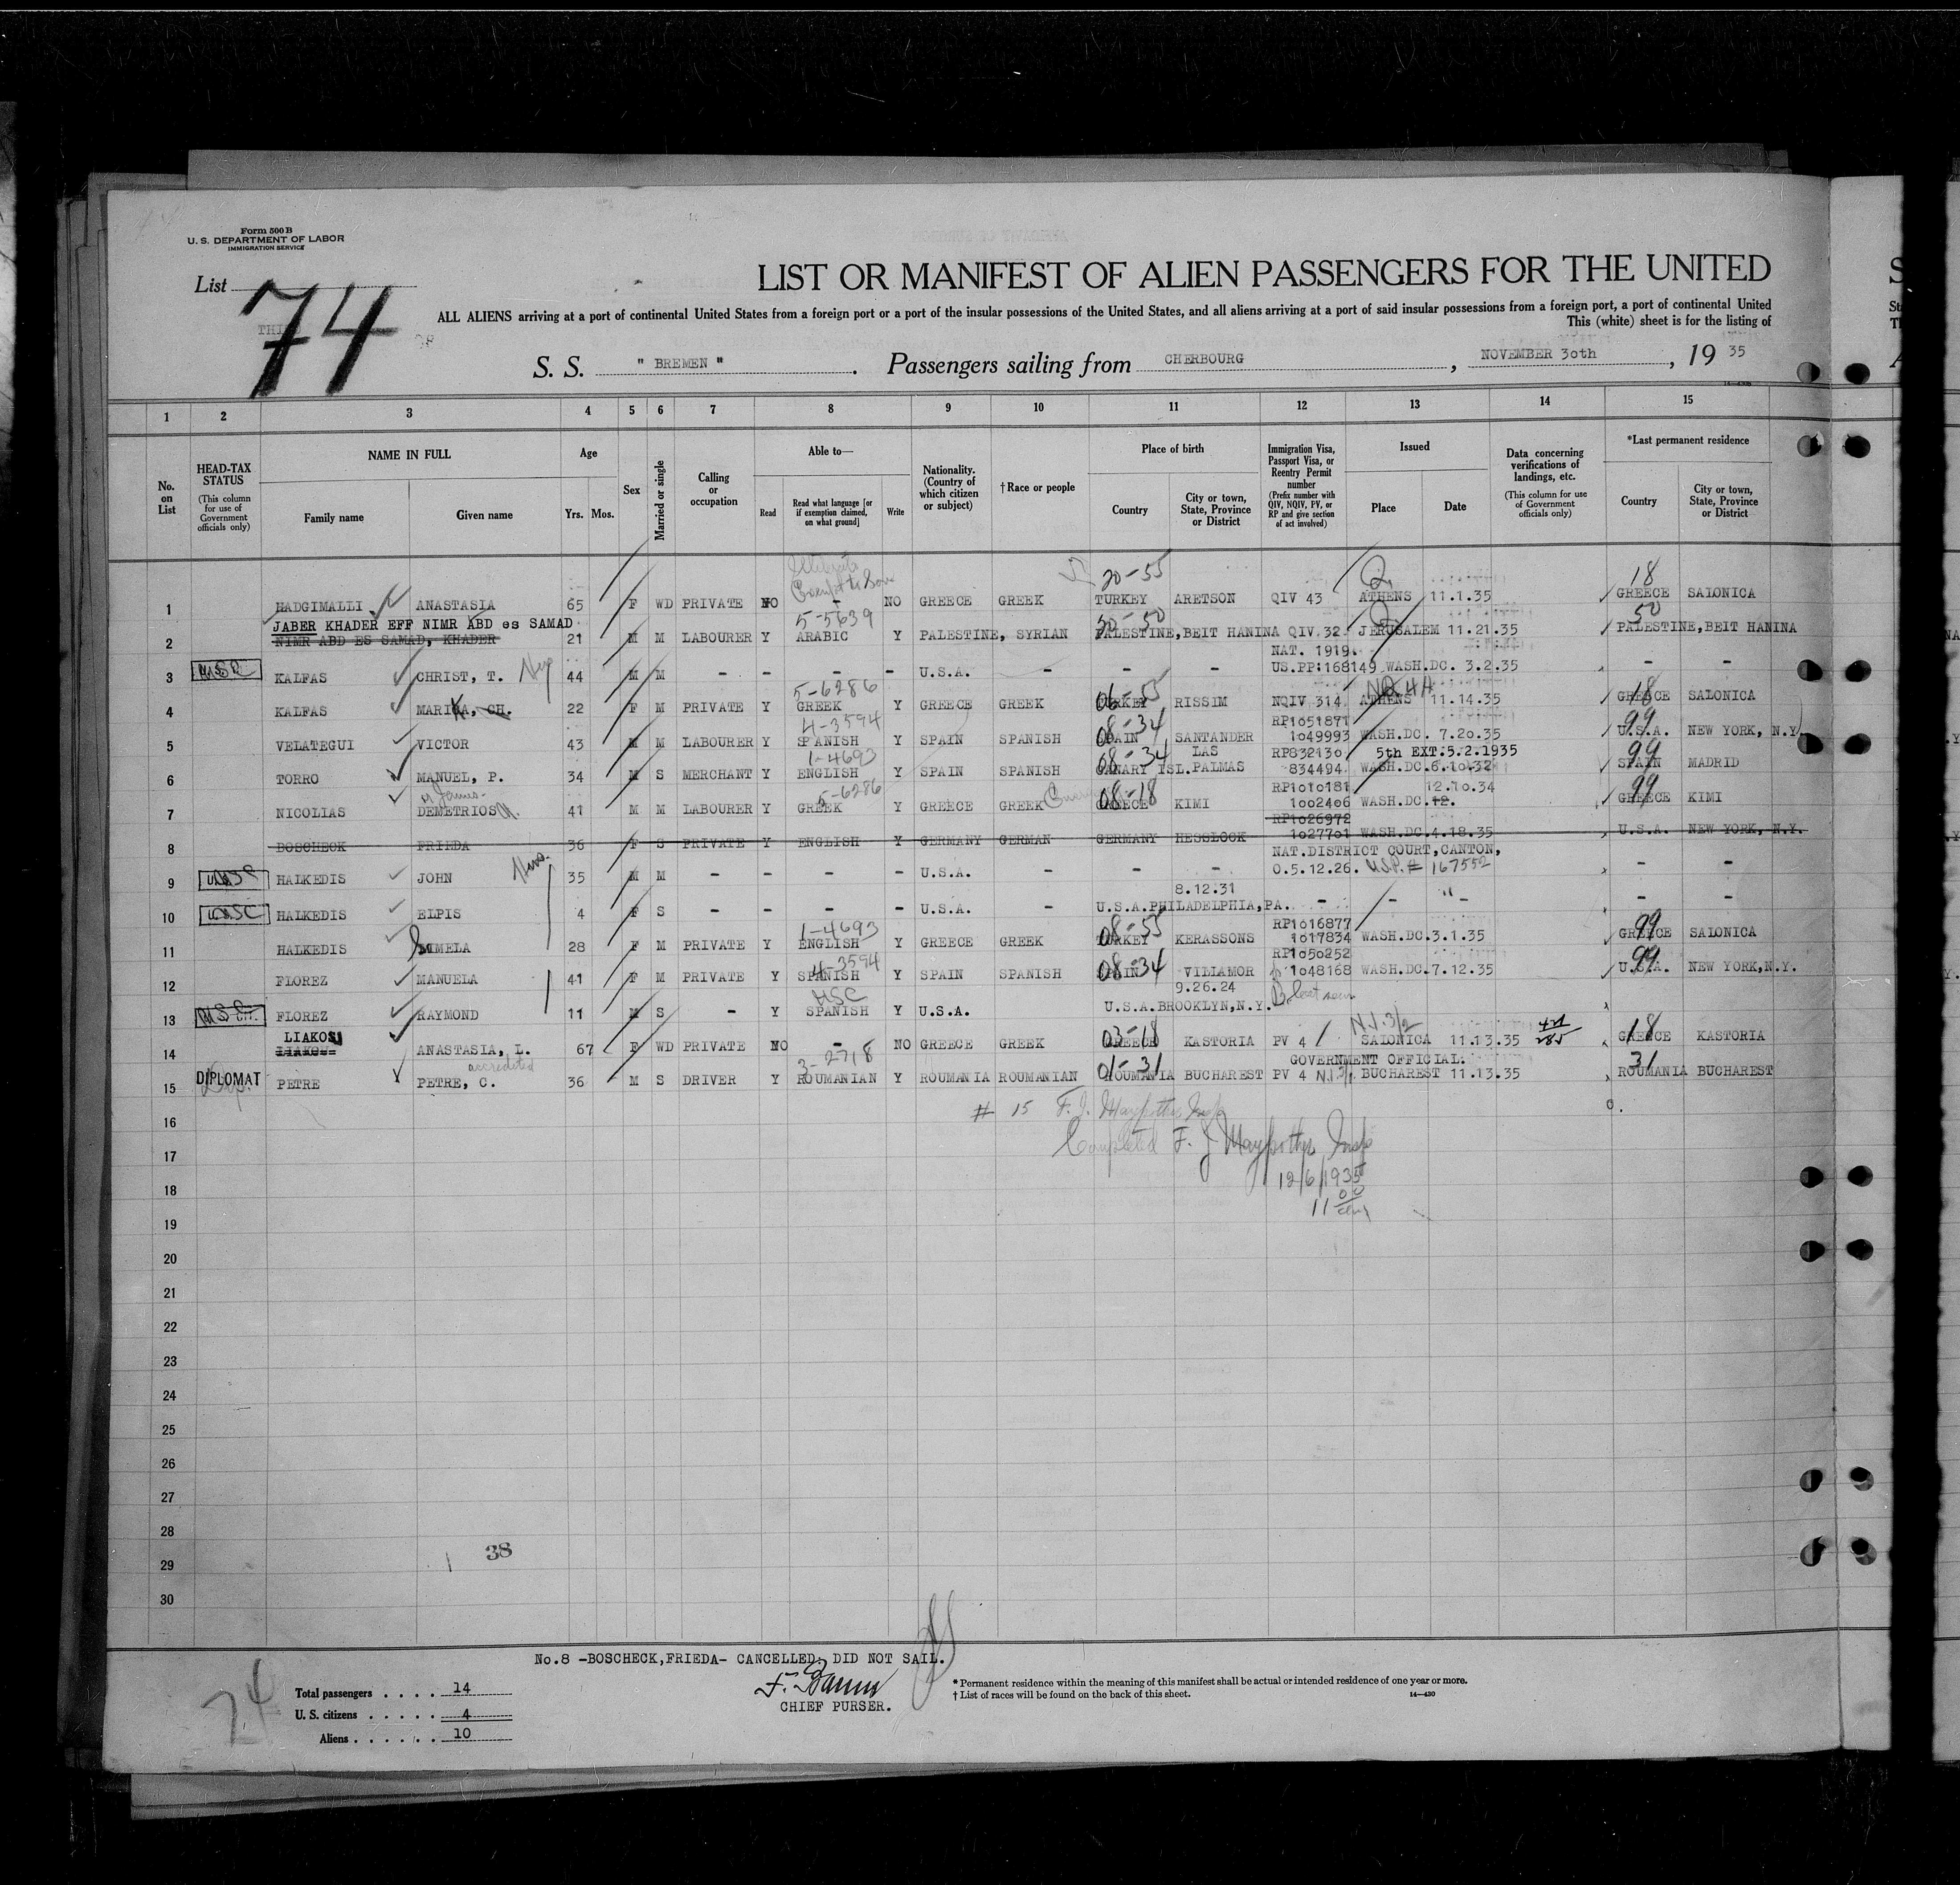 Form 500 B
U. S. DEPARTMENT OF LABOR
IMMIGRATION SERVICE
List 74
LIST OR MANIFEST OF ALIEN PASSENGERS FOR THE UNITED
ALL ALIENS arriving at a port of continental United States from a foreign port or a port of the insular possessions of the United States, and all aliens arriving at a port of said insular possessions from a foreign port, a port of continental United
This (white) sheet is for the listing of
S. S. " BREMEN " . Passengers sailing from CHERBOURG , NOVEMBER 30th , 19 35
1 2 3 4 5 6 7 8 9 10 11 12 13 14 15
No. on List
HEAD-TAX STATUS (This column for use of Government officials only)
NAME IN FULL Family name Given name
Age Yrs. Mos.
Sex
Married or single
Calling or occupation
Able to— Read Read what language [or if exemption claimed, on what ground] Write
Nationality. (Country of which citizen or subject)
†Race or people
Place of birth Country City or town, State, Province or District
Immigration Visa, Passport Visa, or Reentry Permit number (Prefix number with QIV, NQIV, PV, or RP and give section of act involved)
Issued Place Date
Data concerning verifications of landings, etc. (This column for use of Government officials only)
*Last permanent residence Country City or town, State, Province or District
20-55 Q 18
1 HADGIMALLI ANASTASIA 65 F WD PRIVATE NO - NO GREECE GREEK TURKEY ARETSON QIV 43 ATHENS 11.1.35 GREECE SALONICA
JABER KHADER EFF NIMR ABD es SAMAD 5-5639 20-50 Q 50
2 NIMR ABD ES SAMAD, KHADER 21 M M LABOURER Y ARABIC Y PALESTINE, SYRIAN PALESTINE, BEIT HANINA QIV 32 JERUSALEM 11.21.35 PALESTINE, BEIT HANINA
NAT. 1919.
3 KALFAS CHRIST, T. 44 M M - - - - U.S.A. - - - US.PP:168149 WASH.DC. 3.2.35 - -
5-6286 06-55 18
4 KALFAS MARIKA, CH. 22 F M PRIVATE Y GREEK Y GREECE GREEK TURKEY RISSIM NQIV 314 ATHENS 11.14.35 GREECE SALONICA
4-3594 08-34 RP1051871 99
5 VELATEGUI VICTOR 43 M M LABOURER Y SPANISH Y SPAIN SPANISH SPAIN SANTANDER 1049993 WASH.DC. 7.20.35 U.S.A. NEW YORK, N.Y.
1-4693 08-34 LAS RP832130 5th EXT:5.2.1935 99
6 TORRO MANUEL, P. 34 M S MERCHANT Y ENGLISH Y SPAIN SPANISH CANARY ISL. PALMAS 834494 WASH.DC.6.10.32 SPAIN MADRID
5-6286 08-18 RP1010181 12.10.34 99
7 NICOLIAS DEMETRIOS 41 M M LABOURER Y GREEK Y GREECE GREEK GREECE KIMI 1002406 WASH.DC.12. GREECE KIMI
RP1026972
8 BOSCHECK FRIEDA 36 F S PRIVATE Y ENGLISH Y GERMANY GERMAN GERMANY HESSLOCK 1027701 WASH.DC.4.18.35 U.S.A. NEW YORK, N.Y.
NAT.DISTRICT COURT,CANTON,
9 HALKEDIS JOHN 35 M M - - - - U.S.A. - - - O.5.12.26. U.S.P.# 167552 - -
8.12.31
10 HALKEDIS ELPIS 4 F S - - - - U.S.A. - U.S.A.PHILADELPHIA,PA. - - - - -
1-4693 08-55 RP1016877 99
11 HALKEDIS SIMELA 28 F M PRIVATE Y ENGLISH Y GREECE GREEK TURKEY KERASSONS 1017834 WASH.DC.3.1.35 GREECE SALONICA
4-3594 08-34 RP1050252 99
12 FLOREZ MANUELA 41 F M PRIVATE Y SPANISH Y SPAIN SPANISH SPAIN VILLAMOR 1048168 WASH.DC.7.12.35 U.S.A. NEW YORK,N.Y.
USC 9.26.24
13 FLOREZ RAYMOND 11 M S - Y SPANISH Y U.S.A. U.S.A.BROOKLYN,N.Y.
LIAKOS 03-18 N.I.3/2 18
14 ANASTASIA, L. 67 F WD PRIVATE NO - NO GREECE GREEK GREECE KASTORIA PV 4 SALONICA 11.13.35 GREECE KASTORIA
accredited 3-2718 01-31 GOVERNMENT OFFICIAL. 31
15 DIPLOMAT PETRE PETRE, C. 36 M S DRIVER Y ROUMANIAN Y ROUMANIA ROUMANIAN ROUMANIA BUCHAREST PV 4 BUCHAREST 11.13.35 ROUMANIA BUCHAREST
16 # 15
17 Completed
18 12/6/1935
19 11 00
20
21
22
23
24
25
26
27
28
29 38
30
No.8 -BOSCHECK,FRIEDA- CANCELLED; DID NOT SAIL.
CHIEF PURSER.
74
Total passengers . . . . 14
U. S. citizens . . . . . 4
Aliens . . . . . . 10
* Permanent residence within the meaning of this manifest shall be actual or intended residence of one year or more.
† List of races will be found on the back of this sheet.
14—430